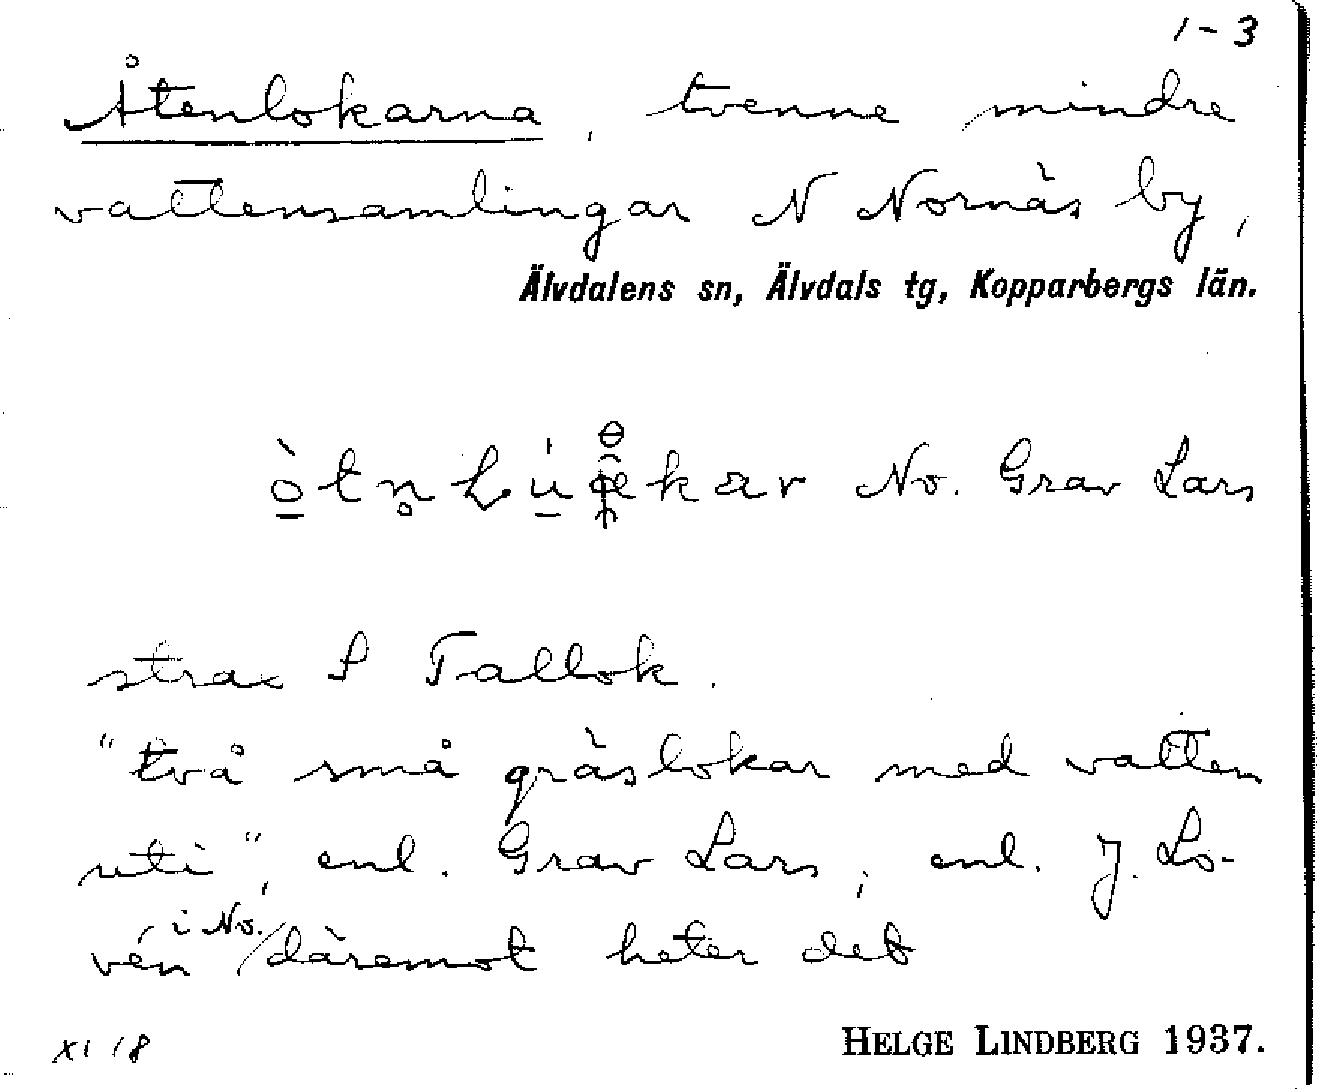 1-3
Åtenlokarna, tvenne mindre
vattensamlingar N Nornäs by,
Älvdalens sn, Älvdals tg, Kopparbergs län.
No. Grav Lars
strax S Tallok.
"två små gräslokar med vatten
uti", enl. Grav Lars; enl. J. Lo-
vén i No. däremot heter det
XI 18
HELGE LINDBERG 1937.